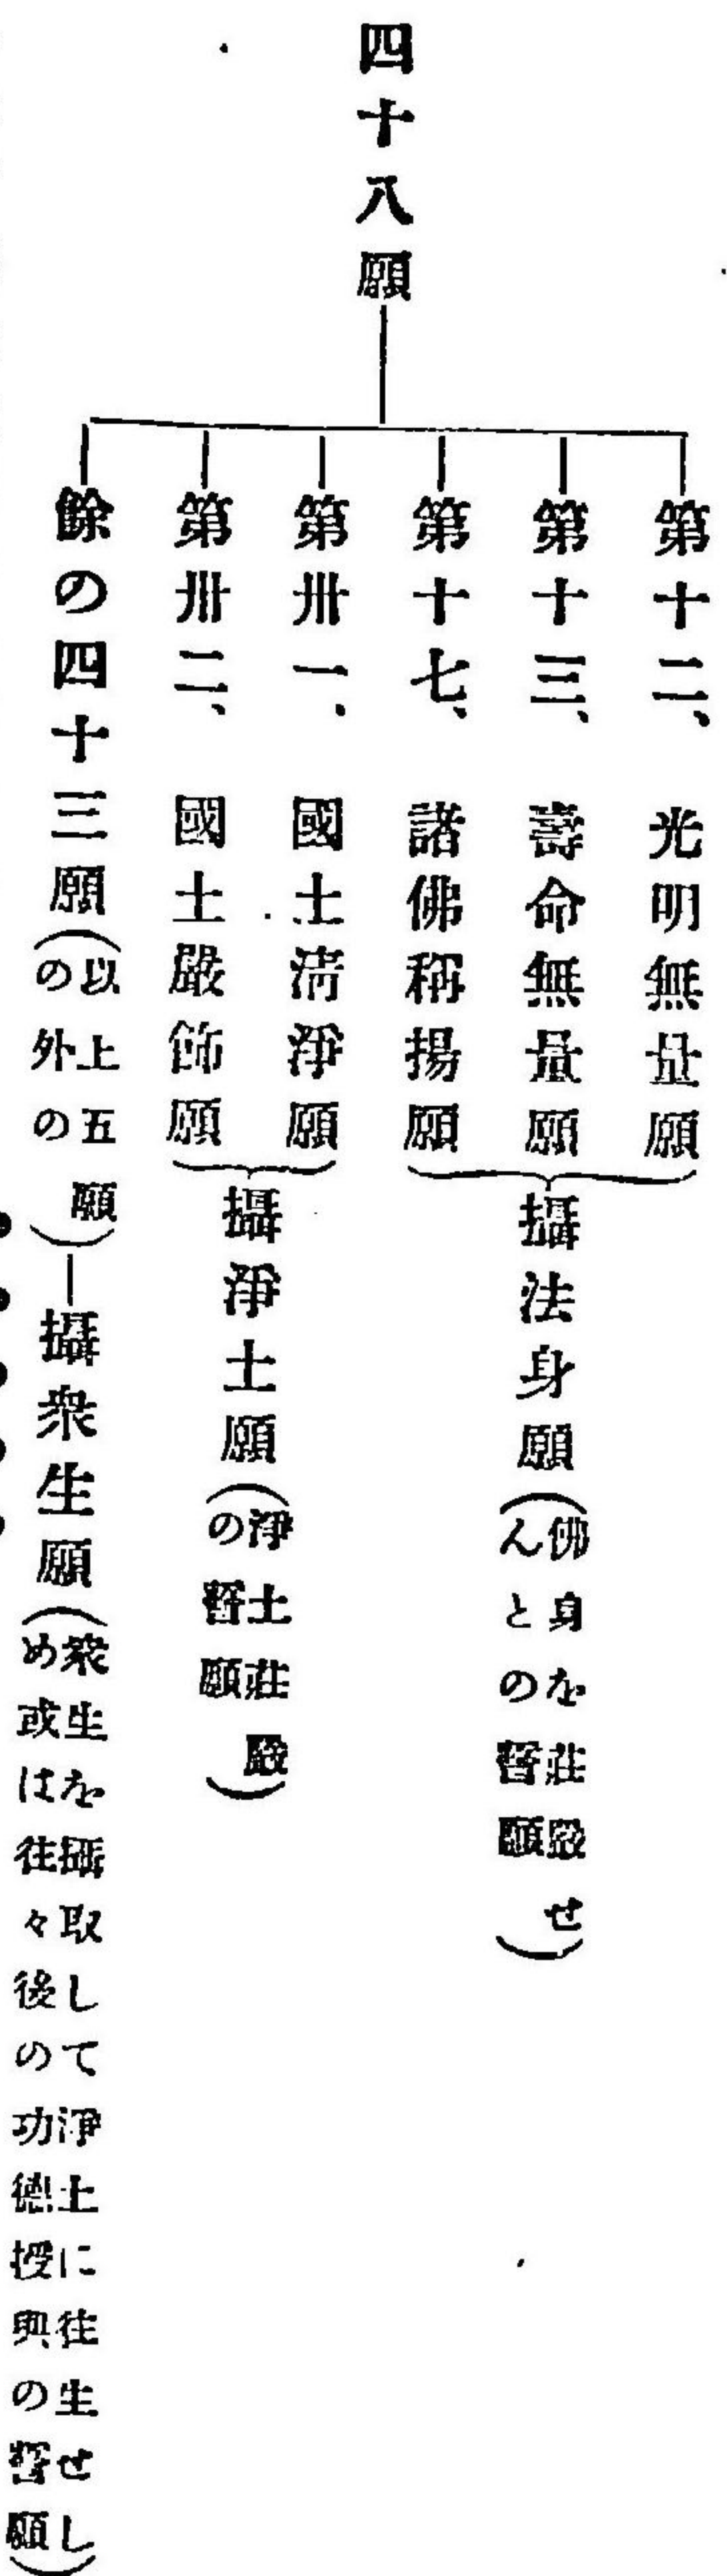 四十八願
第十二、光明無量願
第十三、壽命無量願
第十七、諸佛稱揚願
攝法身願(佛身を莊嚴せ
んとの誓願)
第卅一、國土淸淨願
第卅二、國土嚴飾願
攝淨土願(淨土莊嚴
の誓願)
餘の四十三願(以上五願
の外の)
攝衆生願(衆生を攝取して淨土に往生せし
め或は往々後の功德授與の誓願)